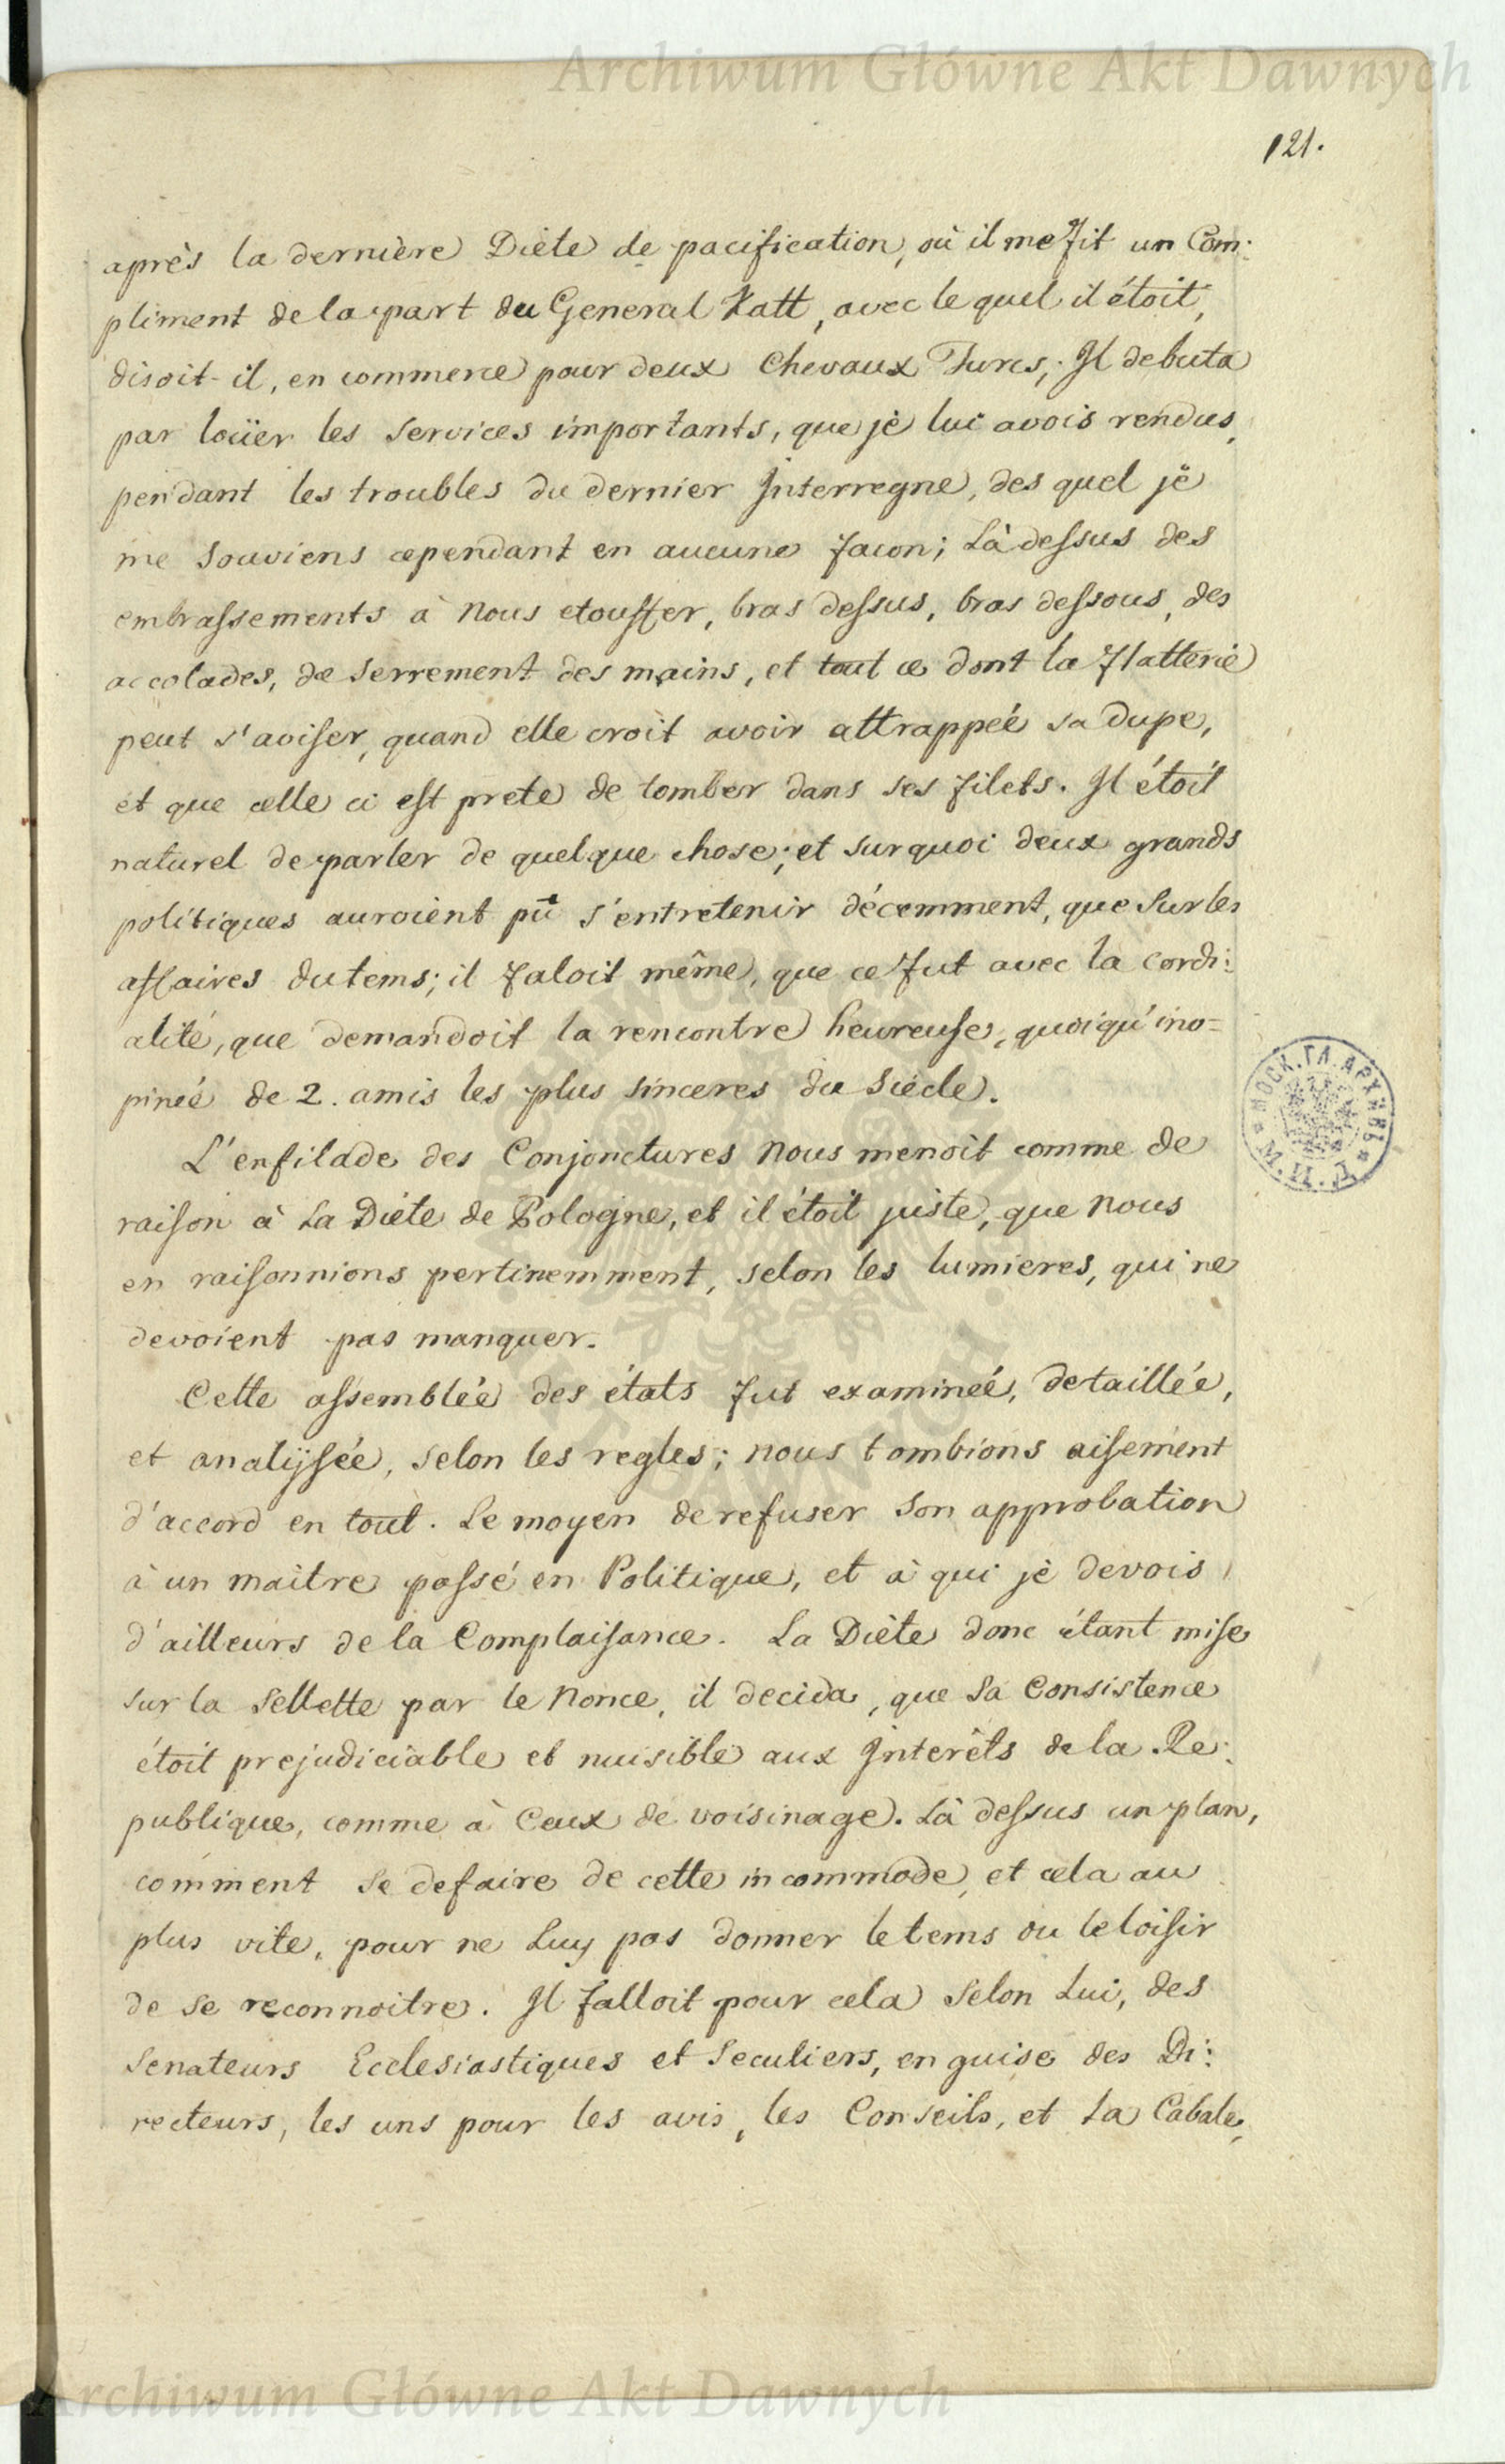 Archiwum Główne Akt Dawnych
121.
après la dernière Diète de pacification, où il me fit un Com:
pliment de la part du General Katt, avec le quel il étoit,
disoit-il, en commerce pour deux Chevaux Turcs; Il debuta
par loüer les services importants, que je lui avois rendus,
pendant les troubles du dernier Interregne, des quel je
me souviens cependant en aucune facon; Là dessus des
embrassements à nous etouffer, bras dessus, bras dessous, des
accolades, de serrement des mains, et tout ce dont la flatterie
peut s'aviser, quand elle croit avoir attrappeé sa dupe,
et que celle ci est prete de tomber dans ses filets. Il étoit
naturel de parler de quelque chose; et sur quoi deux grands
politiques auroient pû s'entretenir décemment, que sur les
affaires du tems; il faloit même, que ce fut avec la cordi:
alité, que demandoit la rencontre heureuse, quoiqu'ino=
pineé de 2. amis les plus sinceres du Siécle.
L'enfilade des Conjonctures nous menoit comme de
raison à La Diéte de Pologne, et il étoit juste, que nous
en raisonnions pertinemment, selon les lumieres, qui ne
devoient pas manquer.
Cette assemblée des états fut examineé, detaillée,
et analijsée, selon les regles; nous tombions aisement
d'accord en tout. Le moyen de refuser son approbation
à un maitre passé en Politique, et à qui je devois
d'ailleurs de la Complaisance. La Diète donc étant mise
sur la sellette par le Nonce, il decida, que sa Consistence
étoit prejudiciable et nuisible aux Interêts de la Re:
publique, comme à Ceux de voisinage. Là dessus un plan,
comment se defaire de cette incommode, et cela au
plus vite, pour ne Luy pas donner le tems ou le loisir
de se reconnoitre. Il falloit pour cela selon Lui, des
Senateurs Ecclesiastiques et Seculiers, en guise des Di:
recteurs, les uns pour les avis, les Conseils, et La Cabale,
МОСК. ГЛ. АРХИВЪ
Archiwum Główne Akt Dawnych